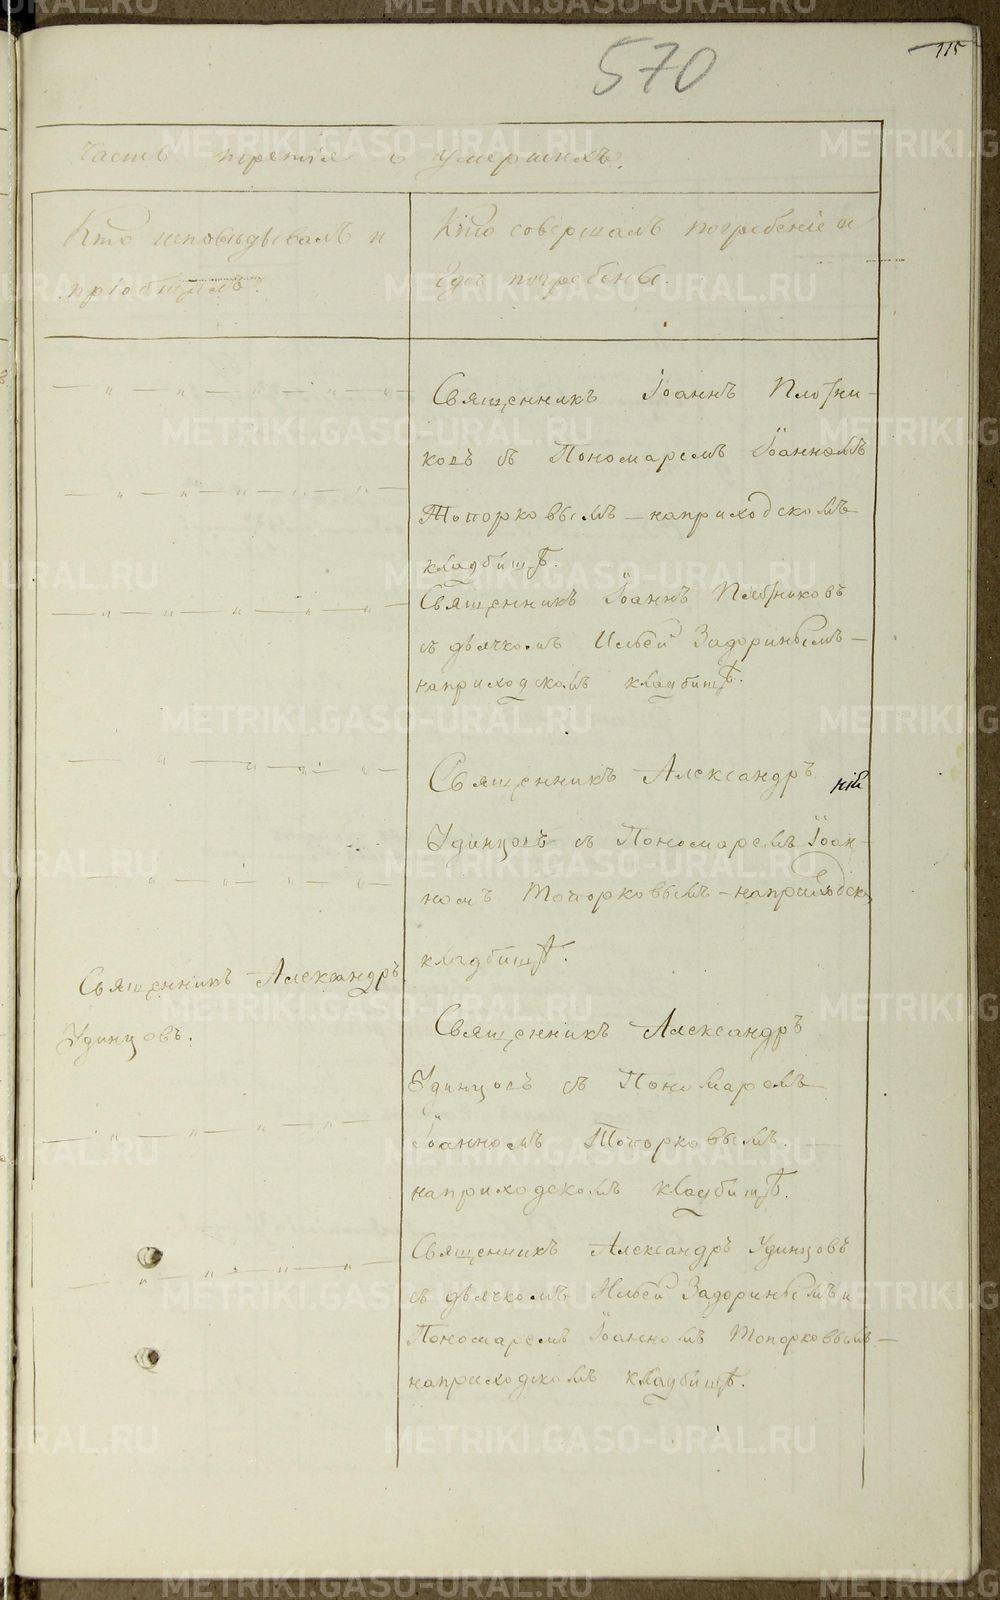 570
115
Часть третія о умершихъ.
Кто исповѣдывалъ и
пріобщалъ.
Кто совершалъ погребеніе и
гдѣ погребены.
Священникъ Іоаннъ Плотни-
ковъ съ Пономаремъ Іоанномъ
Топорковымъ – на приходскомъ
кладбищѣ.
Священникъ Іоаннъ Плотниковъ
съ дьячкомъ Ильей Задоринымъ –
на приходскомъ кладбищѣ.
Священникъ Александръ
ній
Удинцовъ съ Пономаремъ Іоан-
номъ Топорковымъ – на приходск
кладбищѣ.
Священникъ Александръ
Удинцовъ.
Священникъ Александръ
Удинцовъ съ Пономаремъ
Іоанномъ Топорковымъ.
на приходскомъ кладбищѣ.
Священникъ Александръ Удинцовъ
съ дьячкомъ Ильей Задоринымъ и
Пономаремъ Іоанномъ Топорковымъ –
на приходскомъ кладбищѣ.
METRIKI.GASO-URAL.RU